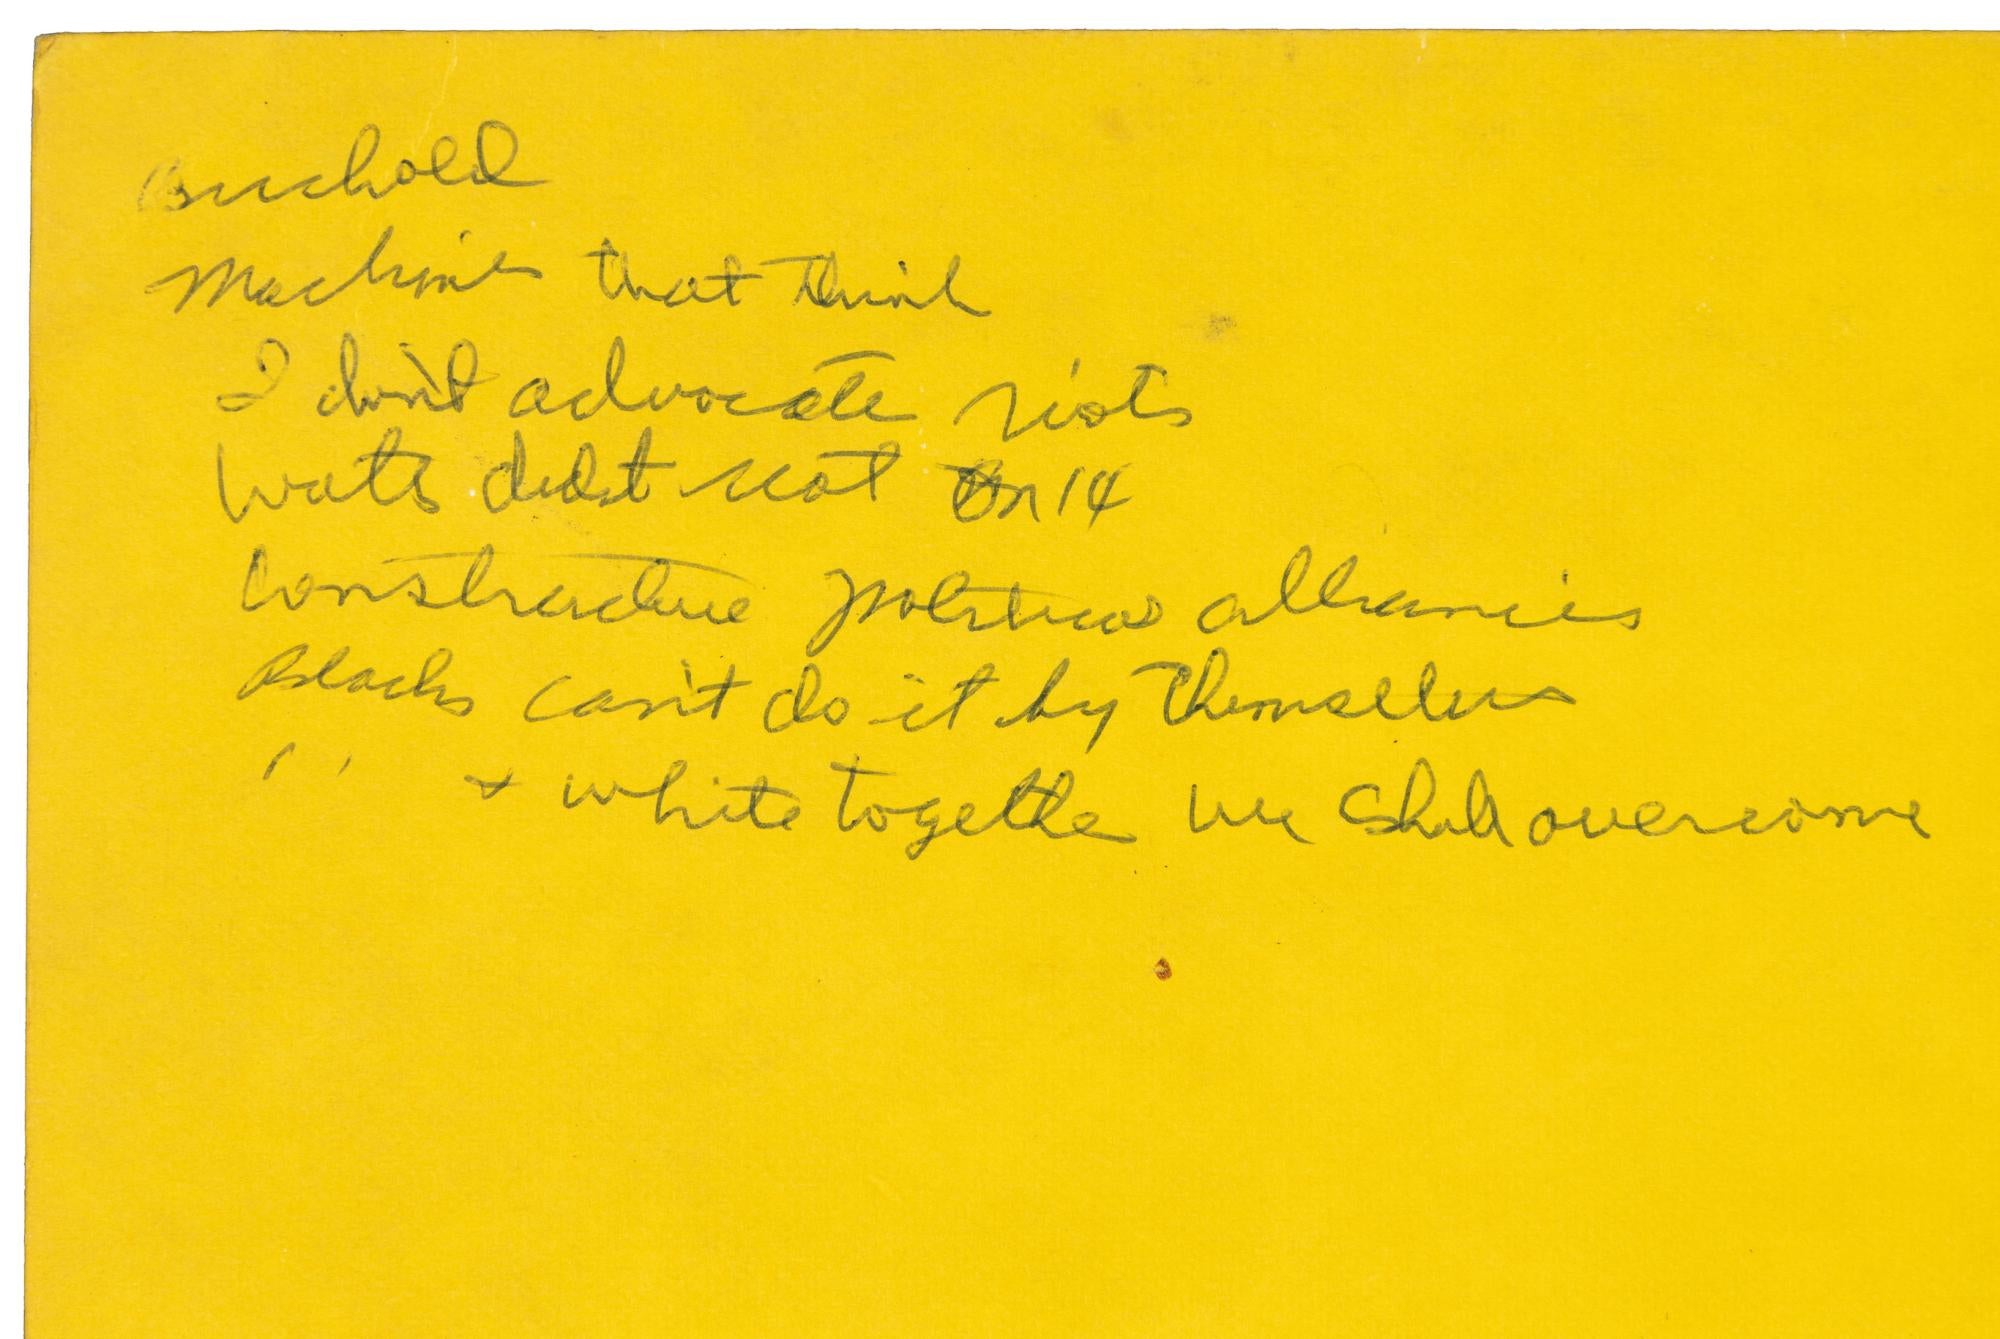 Buchold
Machines that think
I don't advocate riots
Watts didst not on 14
Constructive political alliances
Blacks can't do it by themselves
" + white together we shall overcome